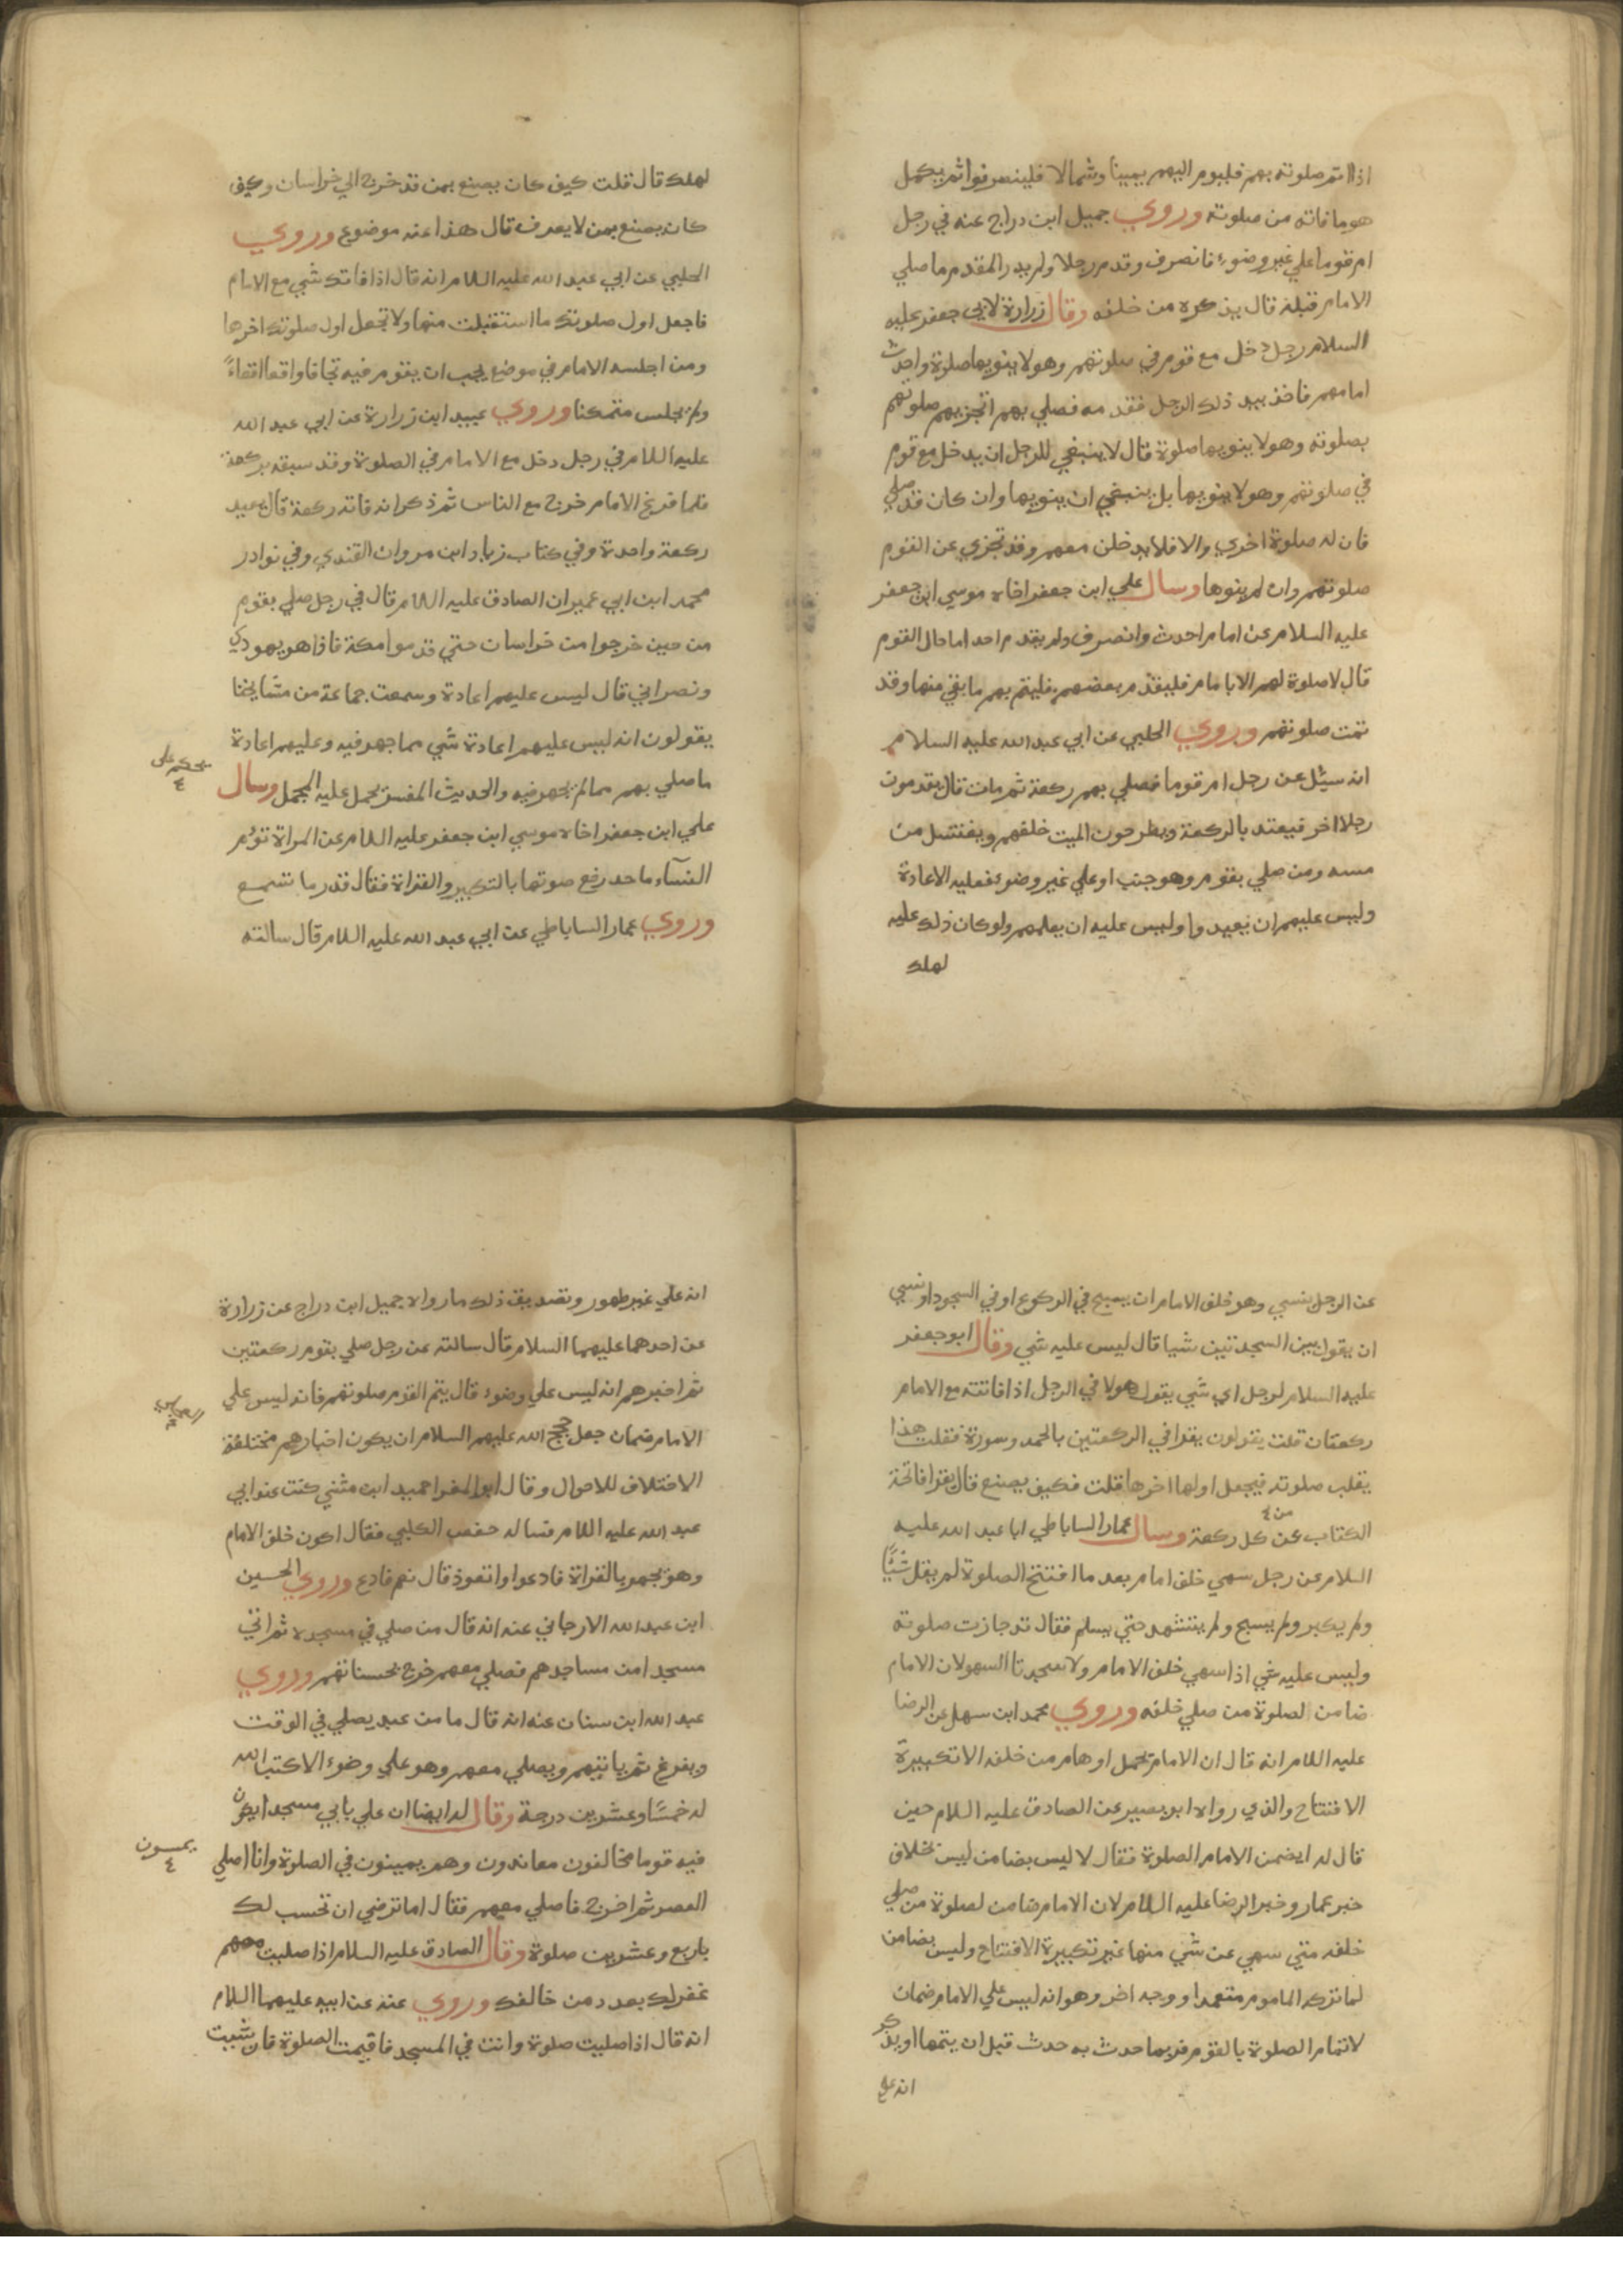 اذا اتم صلوته بهم فليوم اليهم يمينا وشمالا فلينصرفوا ثم يكمل
هو ما فاته من صلوته وروي جميل ابن دراج عنه في رجل
ام قوما علي غير وضوء فانصرف وقدم رجلا ولم يدر المقدم ما صلي
الامام قبله قال يذكره من خلفه وقال زرارة لابي جعفر عليه
السلام رجل دخل مع قوم في صلوتهم وهو لا ينويها صلوة واحدث
امامهم فاخذ بيد ذلك الرجل فقدمه فصلي بهم اتجزيهم صلوتهم
بصلوته وهو لا ينويها صلوة قال لا ينبغي للرجل ان يدخل مع قوم
في صلوتهم وهو لا ينويها بل ينبغي ان ينويها وان كان قد صلي
فان له صلوة اخري والا فلا يدخلن معهم وقد تجزي عن القوم
صلوتهم وان لم ينوها وسال علي ابن جعفر اخاه موسي ابن جعفر
عليه السلام عن امام احدث وانصرف ولم يقدم احدا ما حال القوم
قال لا صلوة لهم الا بامام فليقدم بعضهم فليتم بهم ما بقي منها وقد
تمت صلوتهم وروي الحلبي عن ابي عبد الله عليه السلام
انه سئل عن رجل ام قوما فصلي بهم ركعة ثم مات قال يقدمون
رجلا اخر فيعتد بالركعة ويطرحون الميت خلفهم ويغتسل من
مسه ومن صلي بقوم وهو جنب او علي غير وضوء فعليه الاعادة
وليس عليهم ان يعيدوا وليس عليه ان يعلمهم ولو كان ذلك عليه
لهلك
لهلك قال قلت كيف كان يصنع بمن قد خرج الي خراسان وكيف
كان يصنع بمن لا يعرف قال هذا عنه موضوع وروي
الحلبي عن ابي عبد الله عليه السلام انه قال اذا فاتك شي مع الامام
فاجعل اول صلوتك ما استقبلت منها ولا تجعل اول صلوتك اخرها
ومن اجلسه الامام في موضع يجب ان يقوم فيه تجافا واقعا اقعاءً
ولم يجلس متمكنا وروي عبيد ابن زرارة عن ابي عبد الله
عليه السلام في رجل دخل مع الامام في الصلوة وقد سبقه بركعة
فلما فرغ الامام خرج مع الناس ثم ذكر انه فاته ركعة قال يعيد
ركعة واحدة وفي كتاب زياد ابن مروان القندي وفي نوادر
محمد ابن ابي عمير ان الصادق عليه السلام قال في رجل صلي بقوم
من حين خرجوا من خراسان حتي قدموا مكة فاذا هو يهودي
ونصراني قال ليس عليهم اعادة وسمعت جماعة من مشايخنا
يقولون انه ليس عليهم اعادة شي مما جهر فيه وعليهم اعادة
ما صلي بهم مما لم يجهر فيه والحديث المفسر يحمل عليه المجمل وسال
يحكم علي
٤
علي ابن جعفر اخاه موسي ابن جعفر عليه السلام عن المراة تؤم
النسآء ما حد رفع صوتها بالتكبير والقراة فقال قدر ما تسمع
وروي عمار الساباطي عن ابي عبد الله عليه السلام قال سالته
عن الرجل ينسي وهو خلف الامام ان يسبح في الركوع او في السجود او نسي
ان يقول بين السجدتين شيا قال ليس عليه شي وقال ابو جعفر
عليه السلام لرجل اي شي يقول هولا في الرجل اذا فاتته مع الامام
ركعتان قلت يقولون يقرا في الركعتين بالحمد وسورة فقلت هذا
يقلب صلوته فيجعل اولها اخرها قلت فكيف يصنع قال يقرا فاتحة
من ٤
الكتاب عن كل ركعة وسال عمار الساباطي ابا عبد الله عليه
السلام عن رجل سهي خلف امام بعد ما افتتح الصلوة لم يقل شيًا
ولم يكبر ولم يسبح ولم يتشهد حتي يسلم فقال قد جازت صلوته
وليس عليه شي اذا سهي خلف الامام ولا سجدتا السهو لان الامام
ضامن لصلوة من صلي خلفه وروي محمد ابن سهل عن الرضا
عليه السلام انه قال ان الامام تحمل اوهام من خلفه الا تكبيرة
الافتتاح والذي رواه ابو بصير عن الصادق عليه السلام حين
قال له ايضمن الامام الصلوة فقال لا ليس بضامن ليس بخلاف
خبر عمار وخبر الرضا عليه السلام لان الامام ضامن لصلوة من صلي
خلفه متي سهي عن شي منها غير تكبيرة الافتتاح وليس بضامن
لما تركه الماموم متعمدا ووجه اخر وهو انه ليس علي الامام ضمان
لاتمام الصلوة بالقوم فربما حدث به حدث قبل ان يتمها او يذكر
انه علي
انه علي غير طهور وتصديق ذلك ما رواه جميل ابن دراج عن زرارة
عن احدهما عليهما السلام قال سالته عن رجل صلي بقوم ركعتين
ثم اخبرهم انه ليس علي وضوء قال يتم القوم صلوتهم فانه ليس علي
الامام ضمان جعل حجج الله عليهم السلام ان يكون اخبارهم مختلفة
الاختلاف للاحوال وقال ابو المغرا حميد ابن مثني كنت عند ابي
عبد الله عليه السلام فساله حفص الكلبي فقال اكون خلف الامام
وهو يجهر بالقراة فادعوا واتعوذ قال نعم فادع وروي الحسين
ابن عبد الله الارجاني عنه انه قال من صلي في مسجده ثم اتي
مسجدا من مساجدهم فصلي معهم خرج بحسناتهم وروي
عبد الله ابن سنان عنه انه قال ما من عبد يصلي في الوقت
ويفرغ ثم ياتيهم ويصلي معهم وهو علي وضوء الا كتب الله
له خمسًا وعشرين درجة وقال له ايضا ان علي بابي مسجدا يكون
فيه قوما مخالفون معاندون وهم يمينون في الصلوة وانا اصلي
يمسون
٤
العصر ثم اخرج فاصلي معهم فقال اما ترضي ان تحسب لك
باربع وعشرين صلوة وقال الصادق عليه السلام اذا صليت معهم
غفر لك بعدد من خالفك وروي عنه عن ابيه عليهما السلام
انه قال اذا صليت صلوة وانت في المسجد فاقيمت الصلوة فان شيت